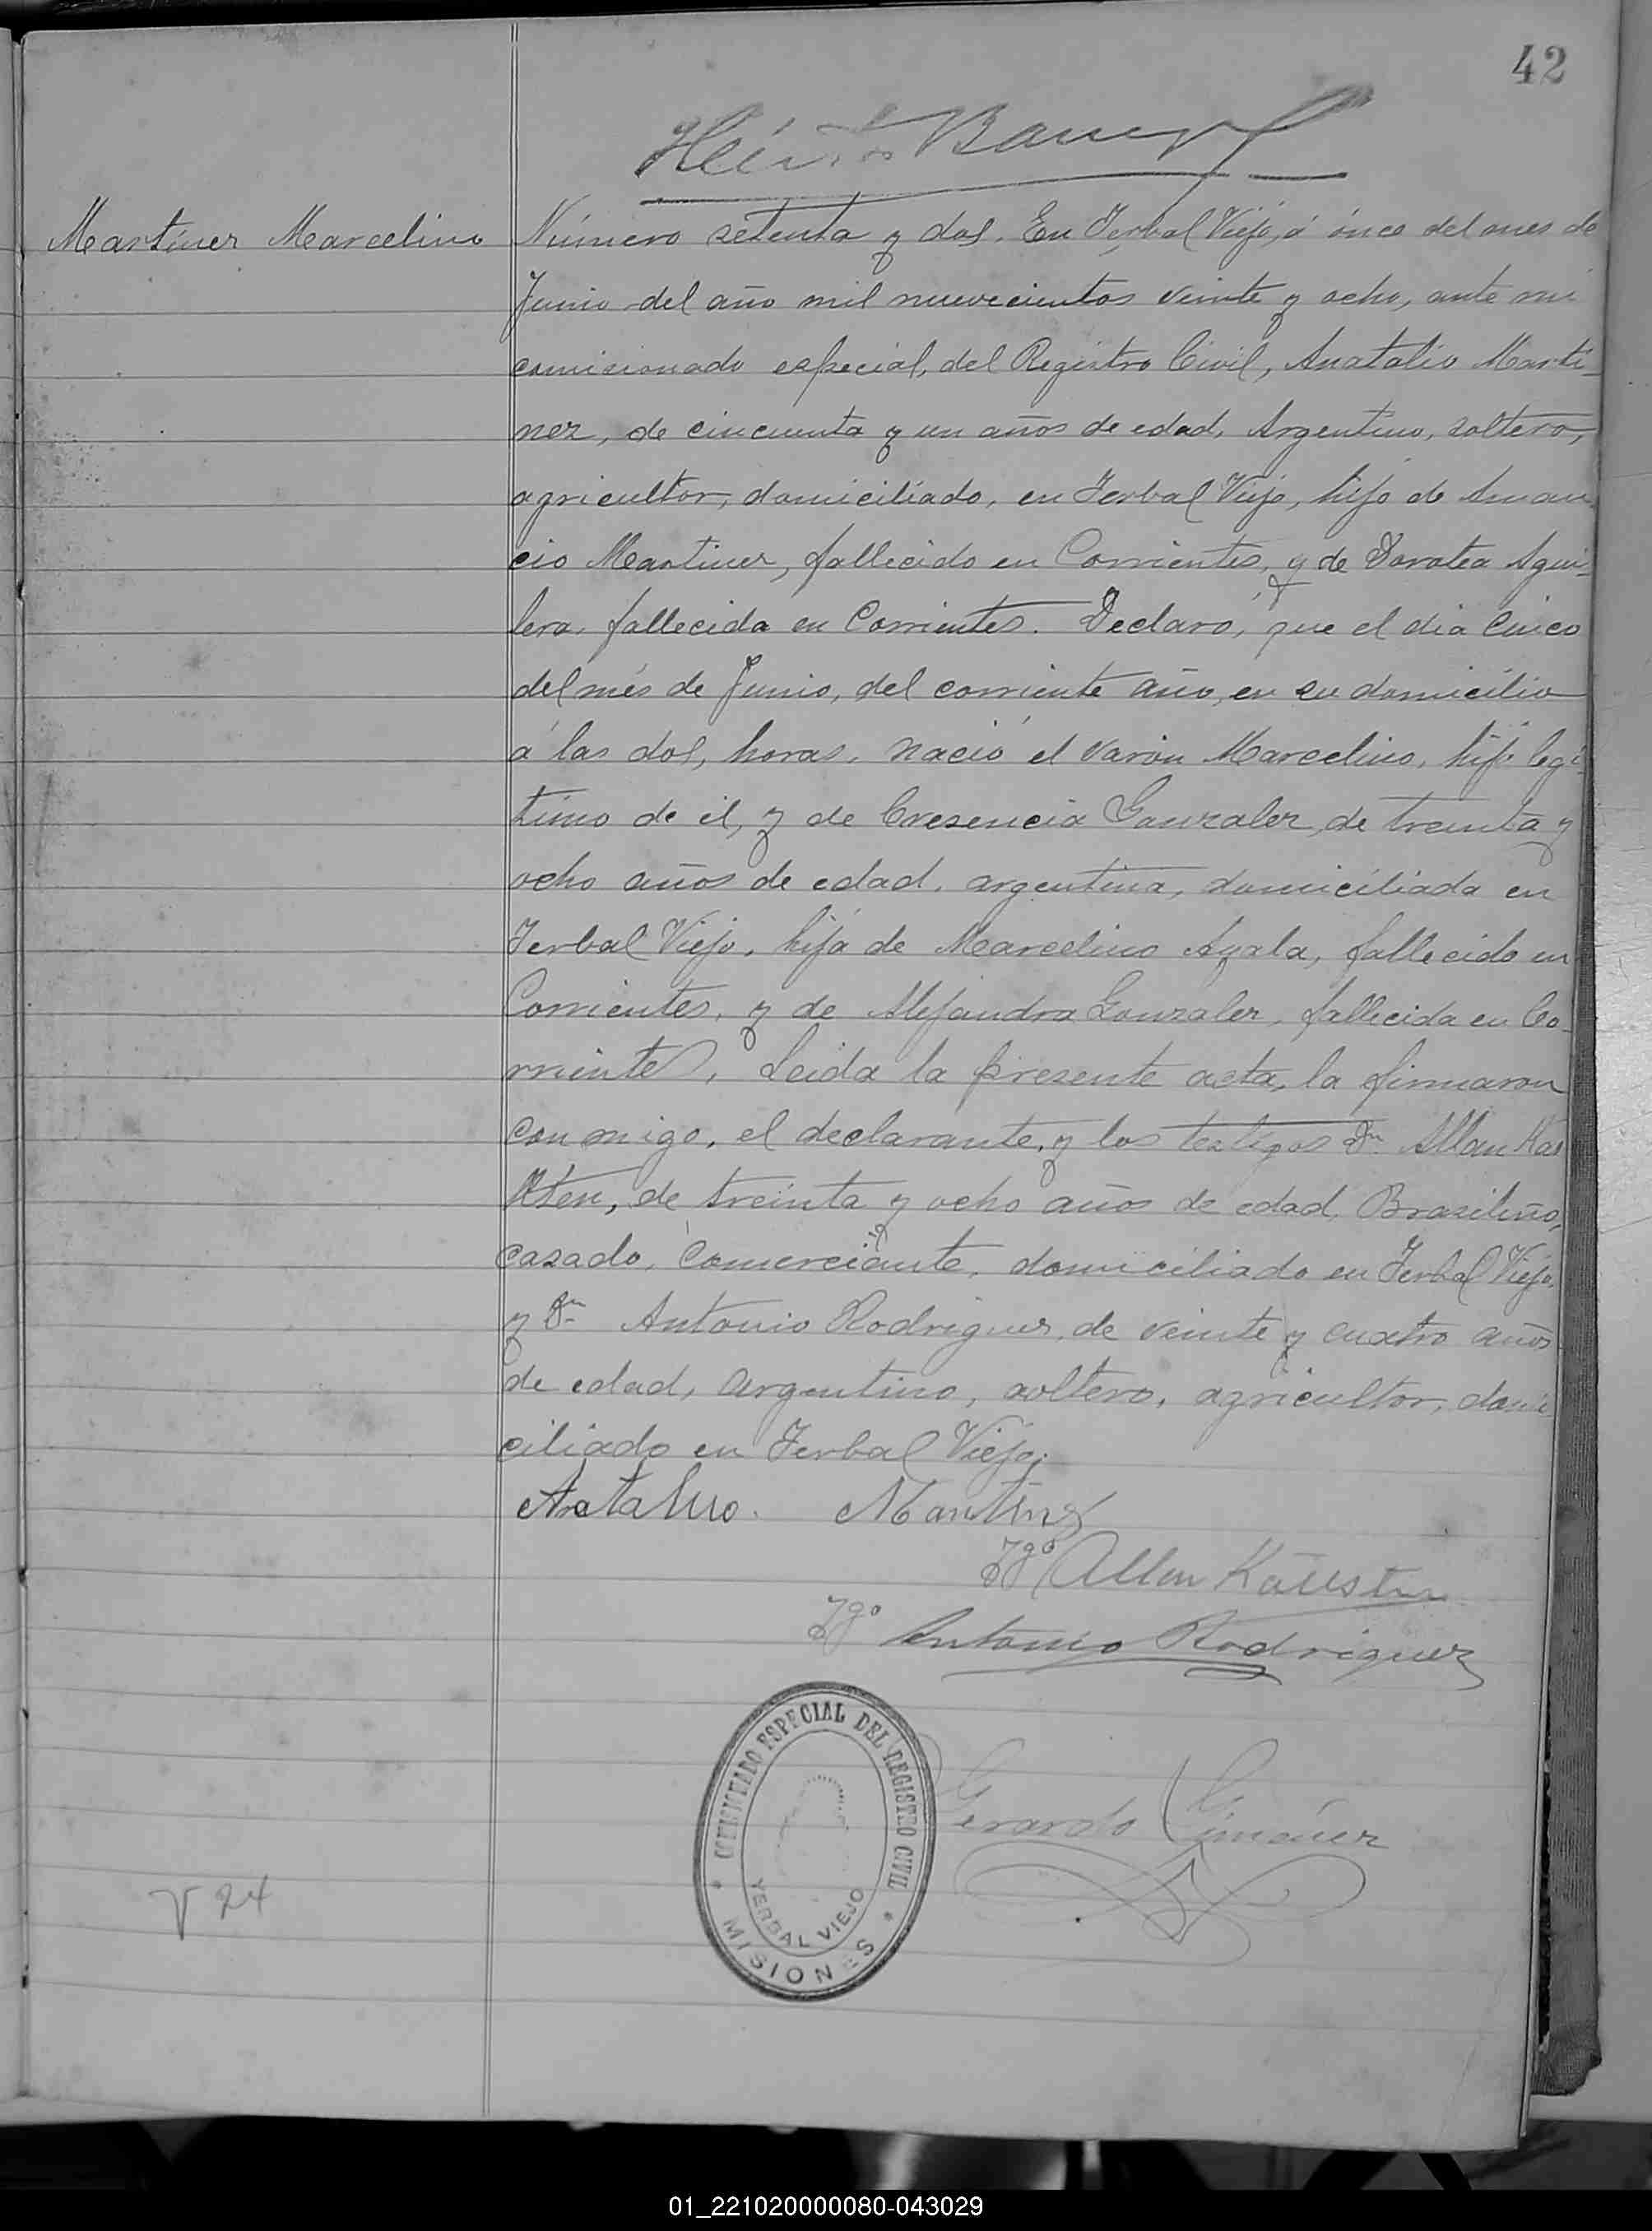 42
Martinez Marcelino
Número setenta y dos. En Yerbal Viejo, á once del mes de
Junio del año mil nuevecientos veinte y ocho, ante mi
comicionado especial, del Registro Civil, Anatalio Marti-
nez, de cincuenta y un años de edad, Argentino, soltero,
agricultor, domiciliado, en Yerbal Viejo, hijo de Aman
cio Martinez, fallecido en Corrientes, y de Dorotea Agui-
lera, fallecida en Corrientes. Declaró, que el dia cinco
del més de Junio, del corriente año, en su domicilio
á las dos, horas, nació el varón Marcelino, hijo legi-
timo de él, y de Cresencia Gonzalez, de treinta y
ocho años de edad, argentina, domiciliada en
Yerbal Viejo, hija de Marcelino Ayala, fallecido en
Corrientes, y de Alejandra Gonzalez, fallecida en Co-
rrientes, Leida la presente acta, la firmaron
con migo, el declarante, y los testigos Dn. Allan Kas
Rten, de treinta y ocho años de edad, Brasileño,
casado, comerciante, domiciliado en Yerbal Viejo,
y Dn Antonio Rodriguez, de veinte y cuatro años
de edad, argentino, soltero, agricultor, domi
ciliado en Yerbal Viejo.
Martinez
Tgo Allan
Tgo Antonio Rodriguez
COMISIONADO ESPECIAL DEL REGISTRO CIVIL
YERBAL VIEJO
MISIONES
Gerardo Gimenez
V 24
01_221020000080-043029